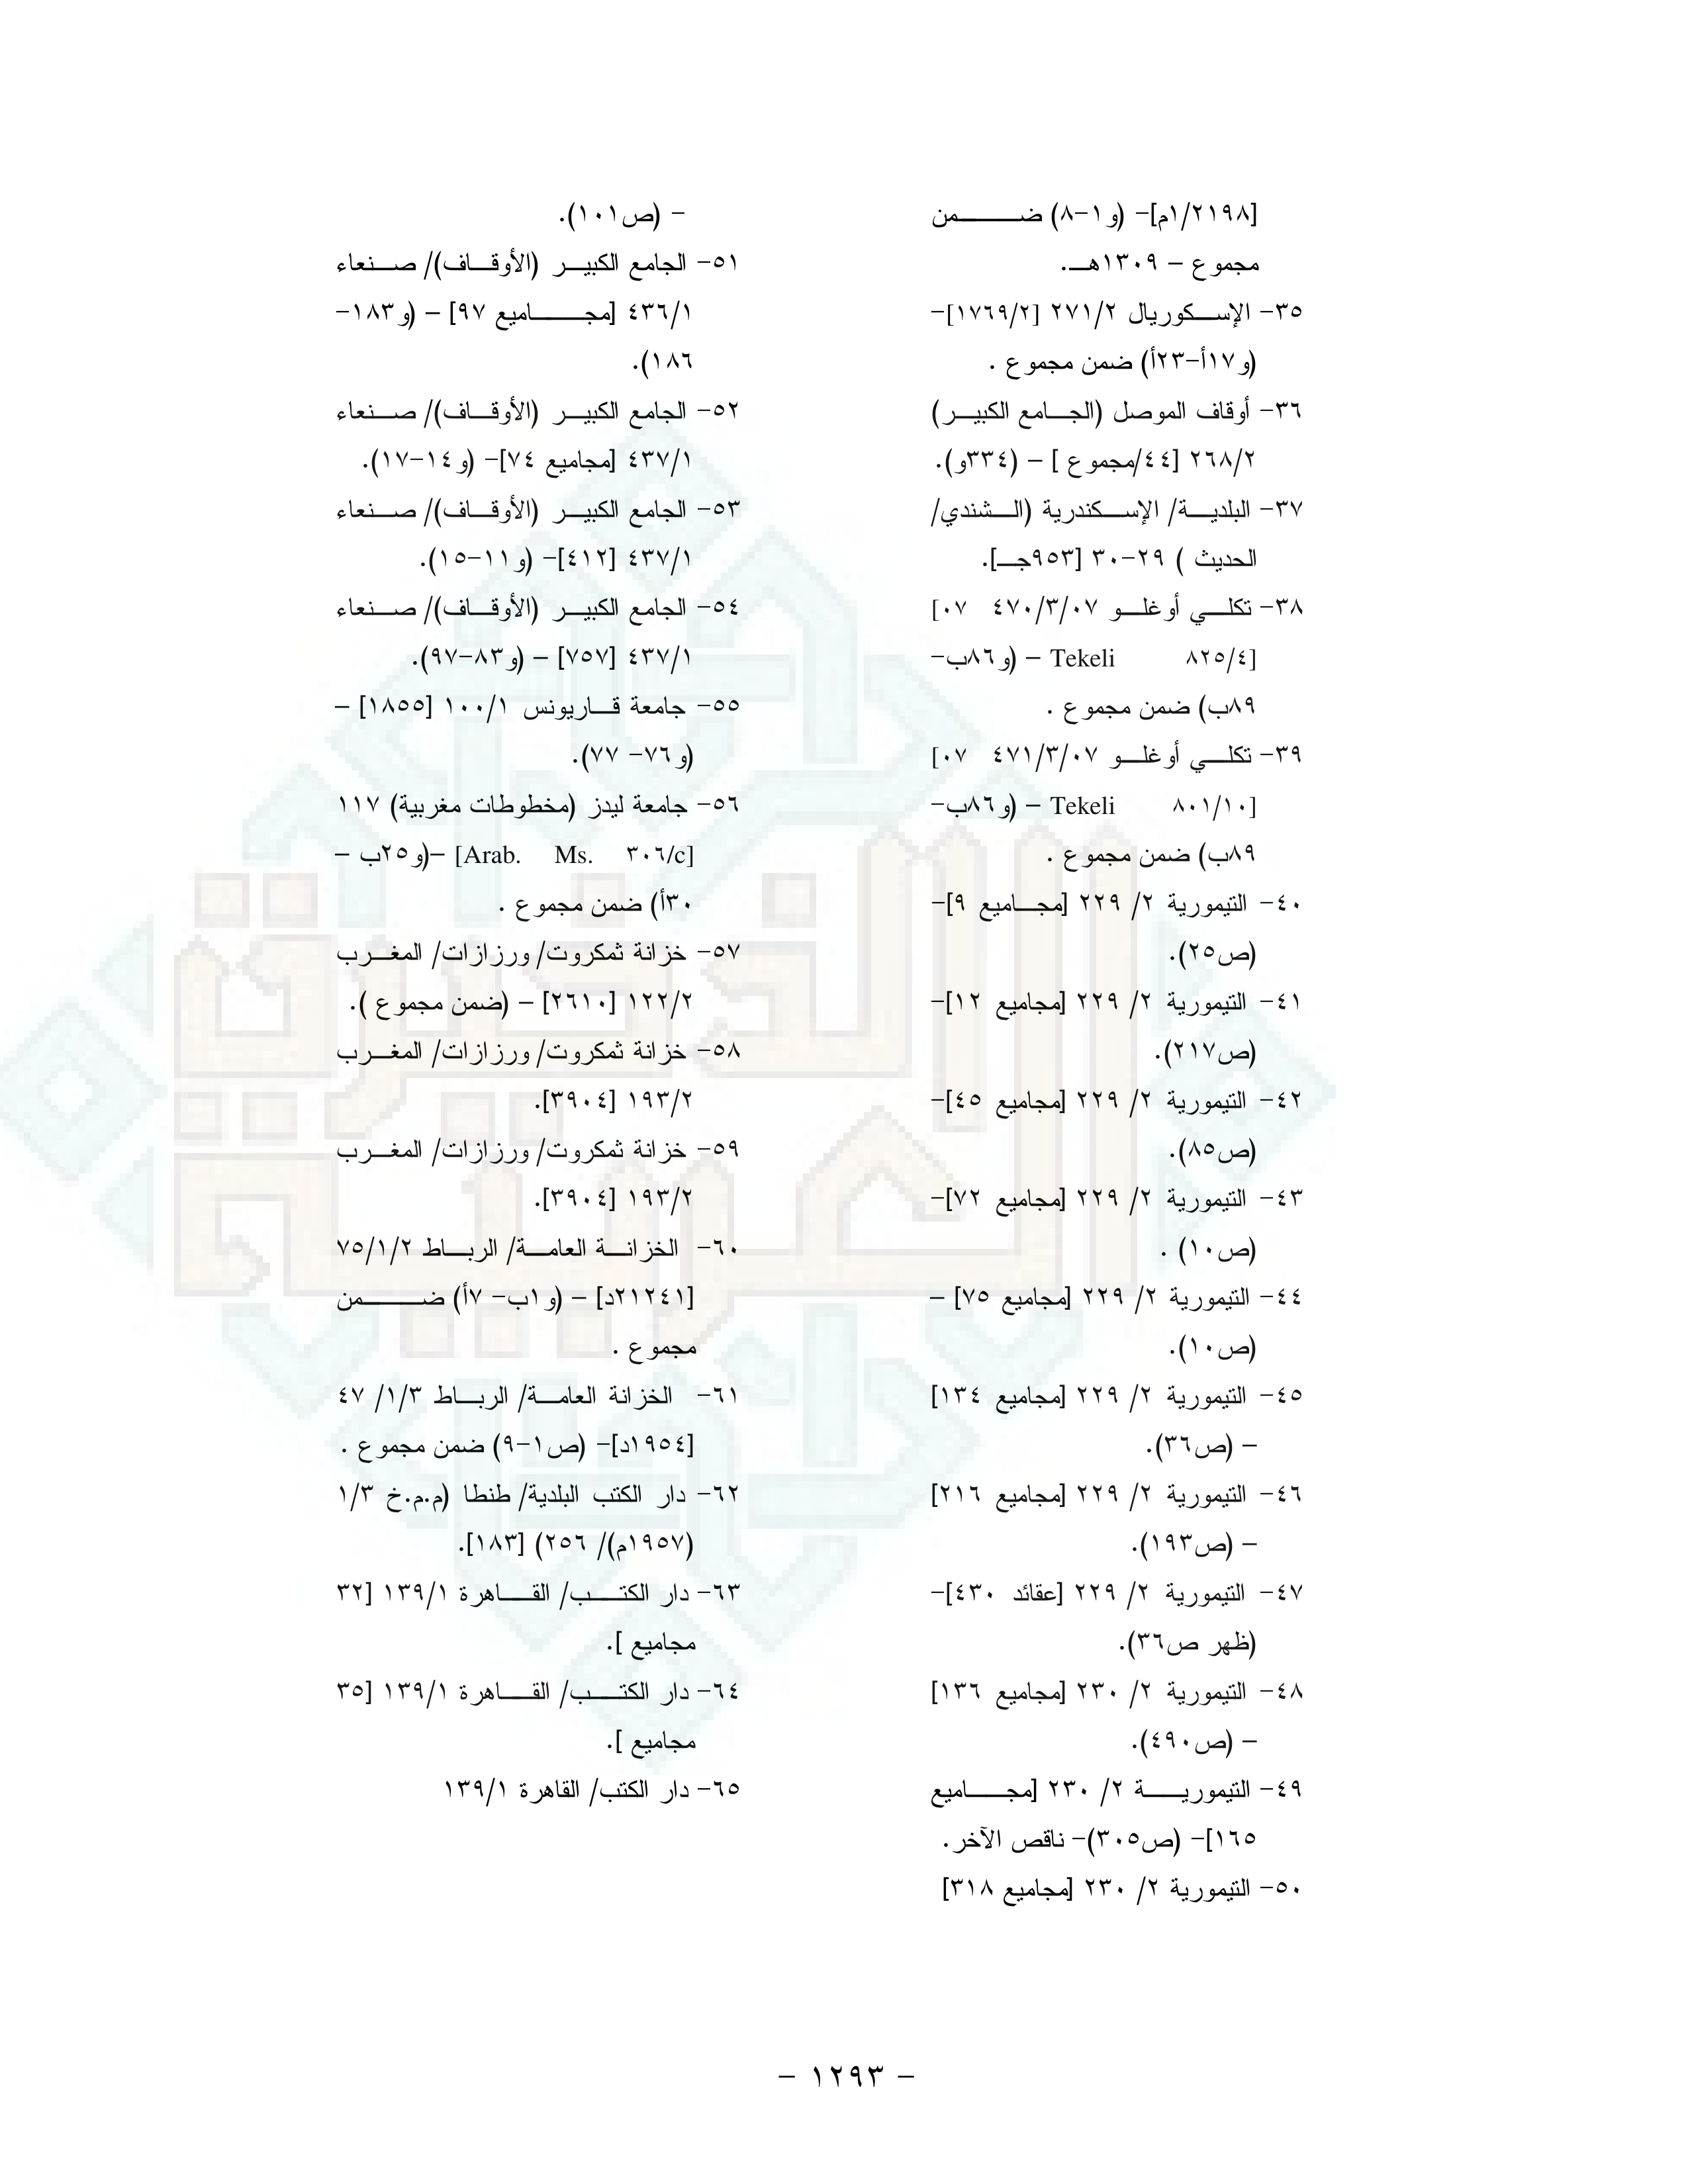 [٢١٩٨/١م]- (و١-٨) ضمن
مجموع – ١٣٠٩هـ.
٣٥- الإسكوريال ٢٧١/٢ [١٧٦٩/٢]-
(و١٧أ-٢٣أ) ضمن مجموع .
٣٦- أوقاف الموصل (الجامع الكبير)
٢٦٨/٢ [٤٤/مجموع ] – (٣٣٤و).
٣٧- البلدية/ الإسكندرية (الشندي/
الحديث ) ٢٩-٣٠ [٩٥٣جـ].
٣٨- تكلي أوغلو ٤٧٠/٣/٠٧ [٠٧
Tekeli ٨٢٥/٤] – (و٨٦ب-
٨٩ب) ضمن مجموع .
٣٩- تكلي أوغلو ٤٧١/٣/٠٧ [٠٧
Tekeli ٨٠١/١٠] – (و٨٦ب-
٨٩ب) ضمن مجموع .
٤٠- التيمورية ٢/ ٢٢٩ [مجاميع ٩]-
(ص٢٥).
٤١- التيمورية ٢/ ٢٢٩ [مجاميع ١٢]-
(ص٢١٧).
٤٢- التيمورية ٢/ ٢٢٩ [مجاميع ٤٥]-
(ص٨٥).
٤٣- التيمورية ٢/ ٢٢٩ [مجاميع ٧٢]-
(ص١٠) .
٤٤- التيمورية ٢/ ٢٢٩ [مجاميع ٧٥] –
(ص١٠).
٤٥- التيمورية ٢/ ٢٢٩ [مجاميع ١٣٤]
– (ص٣٦).
٤٦- التيمورية ٢/ ٢٢٩ [مجاميع ٢١٦]
– (ص١٩٣).
٤٧- التيمورية ٢/ ٢٢٩ [عقائد ٤٣٠]-
(ظهر ص٣٦).
٤٨- التيمورية ٢/ ٢٣٠ [مجاميع ١٣٦]
– (ص٤٩٠).
٤٩- التيمورية ٢/ ٢٣٠ [مجاميع
١٦٥]- (ص٣٠٥)- ناقص الآخر.
٥٠- التيمورية ٢/ ٢٣٠ [مجاميع ٣١٨]
- (ص١٠١).
٥١- الجامع الكبير (الأوقاف)/ صنعاء
٤٣٦/١ [مجاميع ٩٧] – (و١٨٣-
١٨٦).
٥٢- الجامع الكبير (الأوقاف)/ صنعاء
٤٣٧/١ [مجاميع ٧٤]- (و١٤-١٧).
٥٣- الجامع الكبير (الأوقاف)/ صنعاء
٤٣٧/١ [٤١٢]- (و١١-١٥).
٥٤- الجامع الكبير (الأوقاف)/ صنعاء
٤٣٧/١ [٧٥٧] – (و٨٣-٩٧).
٥٥- جامعة قاريونس ١٠٠/١ [١٨٥٥] –
(و٧٦- ٧٧).
٥٦- جامعة ليدز (مخطوطات مغربية) ١١٧
[Arab. Ms. ٣٠٦/c] –(و٢٥ب –
٣٠أ) ضمن مجموع .
٥٧- خزانة ثمكروت/ ورزازات/ المغرب
١٢٢/٢ [٢٦١٠] – (ضمن مجموع ).
٥٨- خزانة ثمكروت/ ورزازات/ المغرب
١٩٣/٢ [٣٩٠٤].
٥٩- خزانة ثمكروت/ ورزازات/ المغرب
١٩٣/٢ [٣٩٠٤].
٦٠- الخزانة العامة/ الرباط ٧٥/١/٢
[٢١٢٤١د] – (و١ب- ٧أ) ضمن
مجموع .
٦١- الخزانة العامة/ الرباط ٣/١/ ٤٧
[١٩٥٤د]- (ص١-٩) ضمن مجموع .
٦٢- دار الكتب البلدية/ طنطا (م.م.خ ١/٣
(١٩٥٧م)/ ٢٥٦) [١٨٣].
٦٣- دار الكتب/ القاهرة ١٣٩/١ [٣٢
مجاميع ].
٦٤- دار الكتب/ القاهرة ١٣٩/١ [٣٥
مجاميع ].
٦٥- دار الكتب/ القاهرة ١٣٩/١
- ١٢٩٣ -
الذخيرة
العربية